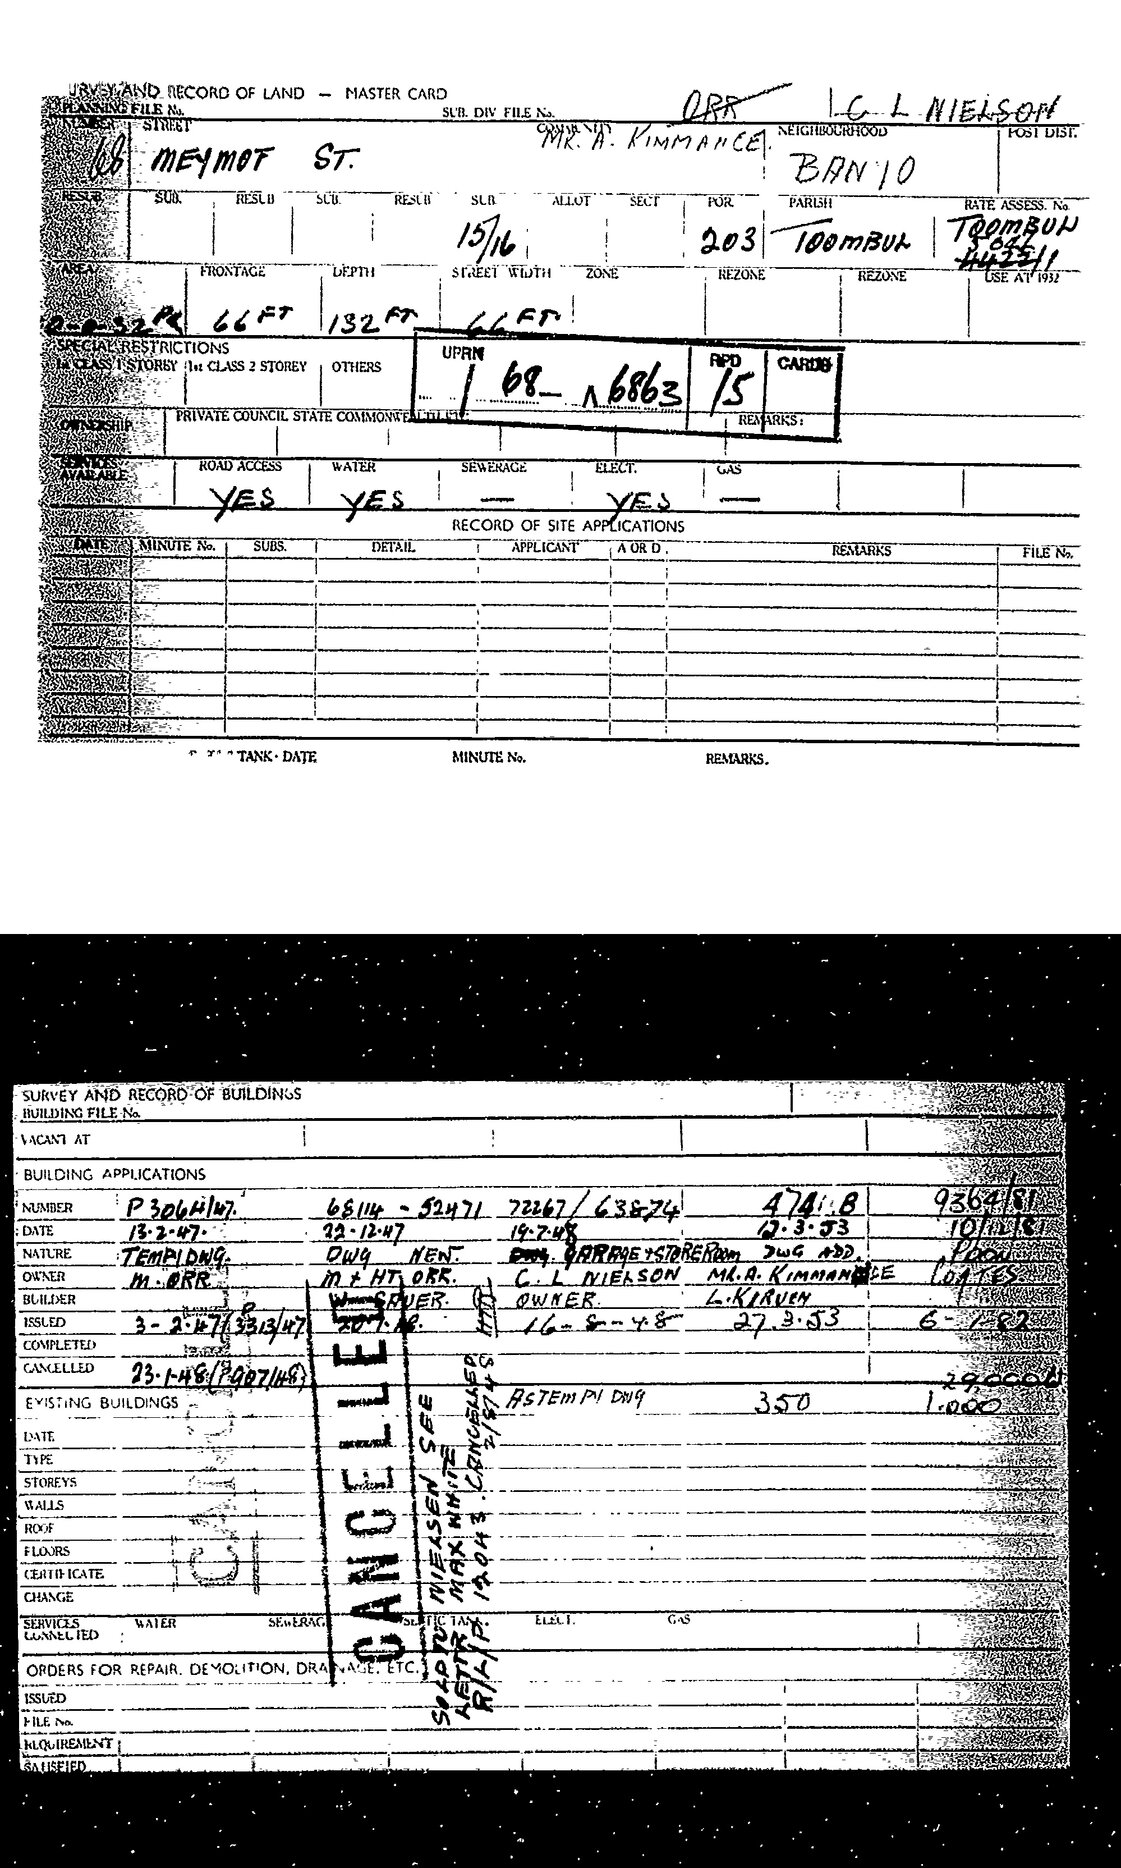 SURVEY AND RECORD OF LAND — MASTER CARD
PLANNING FILE No. SUB. DIV FILE No. ORR C L NIELSON
NUMBER STREET COMMUNITY MR. A. KIMMANCE NEIGHBOURHOOD POST DIST.
68 MEYMOT ST. BANYO
RESUB. SUB. RESUB SUB. RESUB SUB. ALLOT SECT POR. PARISH RATE ASSESS. No.
15/16 203 TOOMBUL TOOMBUL
AREA FRONTAGE DEPTH STREET WIDTH ZONE REZONE REZONE USE AT 1932
0-0-32 PR 66 FT 132 FT 66 FT.
SPECIAL RESTRICTIONS
1st CLASS 1 STOREY 1st CLASS 2 STOREY OTHERS
UPRN RPD CARDS
68 — 6863 15
OWNERSHIP PRIVATE COUNCIL STATE COMMONWEALTH REMARKS:
SERVICES AVAILABLE ROAD ACCESS WATER SEWERAGE ELECT. GAS
YES YES — YES —
RECORD OF SITE APPLICATIONS
DATE MINUTE No. SUBS. DETAIL APPLICANT A OR D. REMARKS FILE No.
TANK - DATE MINUTE No. REMARKS.
SURVEY AND RECORD OF BUILDINGS
BUILDING FILE No.
VACANT AT
BUILDING APPLICATIONS
NUMBER P3064/47. 68114 - 52471 72267 / 63874 4741.B 9364/81
DATE 13-2-47. 22-12-47 19-7-48 12.3.53 10/12/81
NATURE TEMP/DWG. DWG NEW. DWG. GARAGE + STORE ROOM DWG ADD. POOL
OWNER M. ORR M + HT ORR. C. L NIELSON MR. A. KIMMANCE COATES
BUILDER SAUER. OWNER. L. KIRVEN
ISSUED 3-2-47 (P 3313/47 16-8-48 27.3.53 6-1-82
COMPLETED
CANCELLED 23-1-48 (P907/48)
EXISTING BUILDINGS AS TEMPY DWG 350 1.000
DATE
TYPE
STOREYS
WALLS
ROOF
FLOORS
CERTIFICATE
CHANGE
CANCELLED
SOLD TO NIELSEN SEE
LETTR MAX WHITE
R/L/P. 12043. CANCELLED 2/8/48
SERVICES CONNECTED WATER SEWERAGE SEPTIC TANK ELECT. GAS
ORDERS FOR REPAIR, DEMOLITION, DRAINAGE, ETC.
ISSUED
FILE No.
REQUIREMENT
SATISFIED